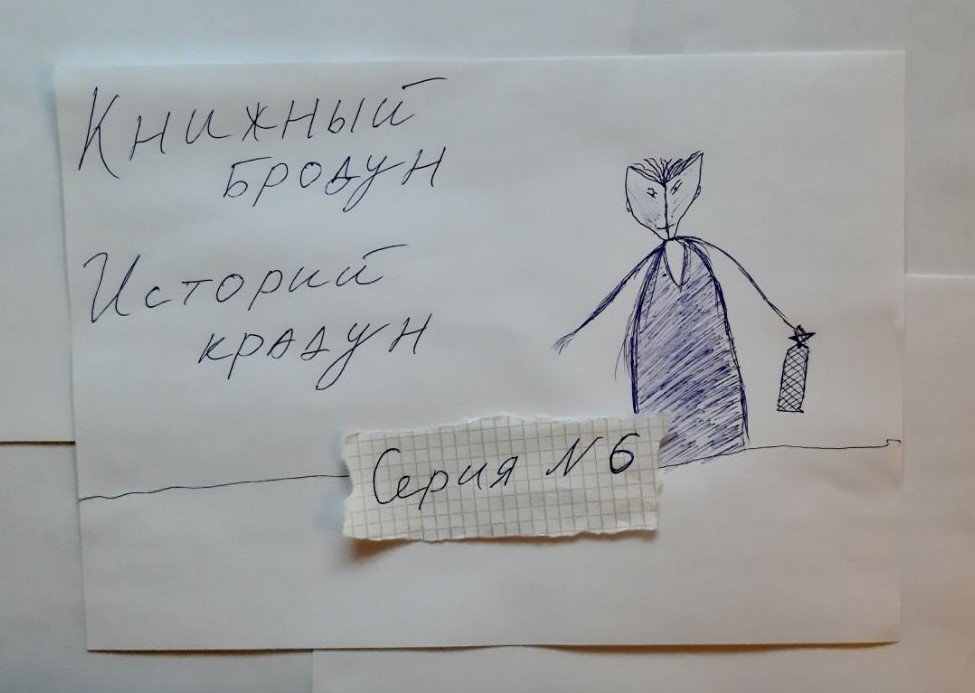 Книжный
бродун
Историй
крадун
Серия N6